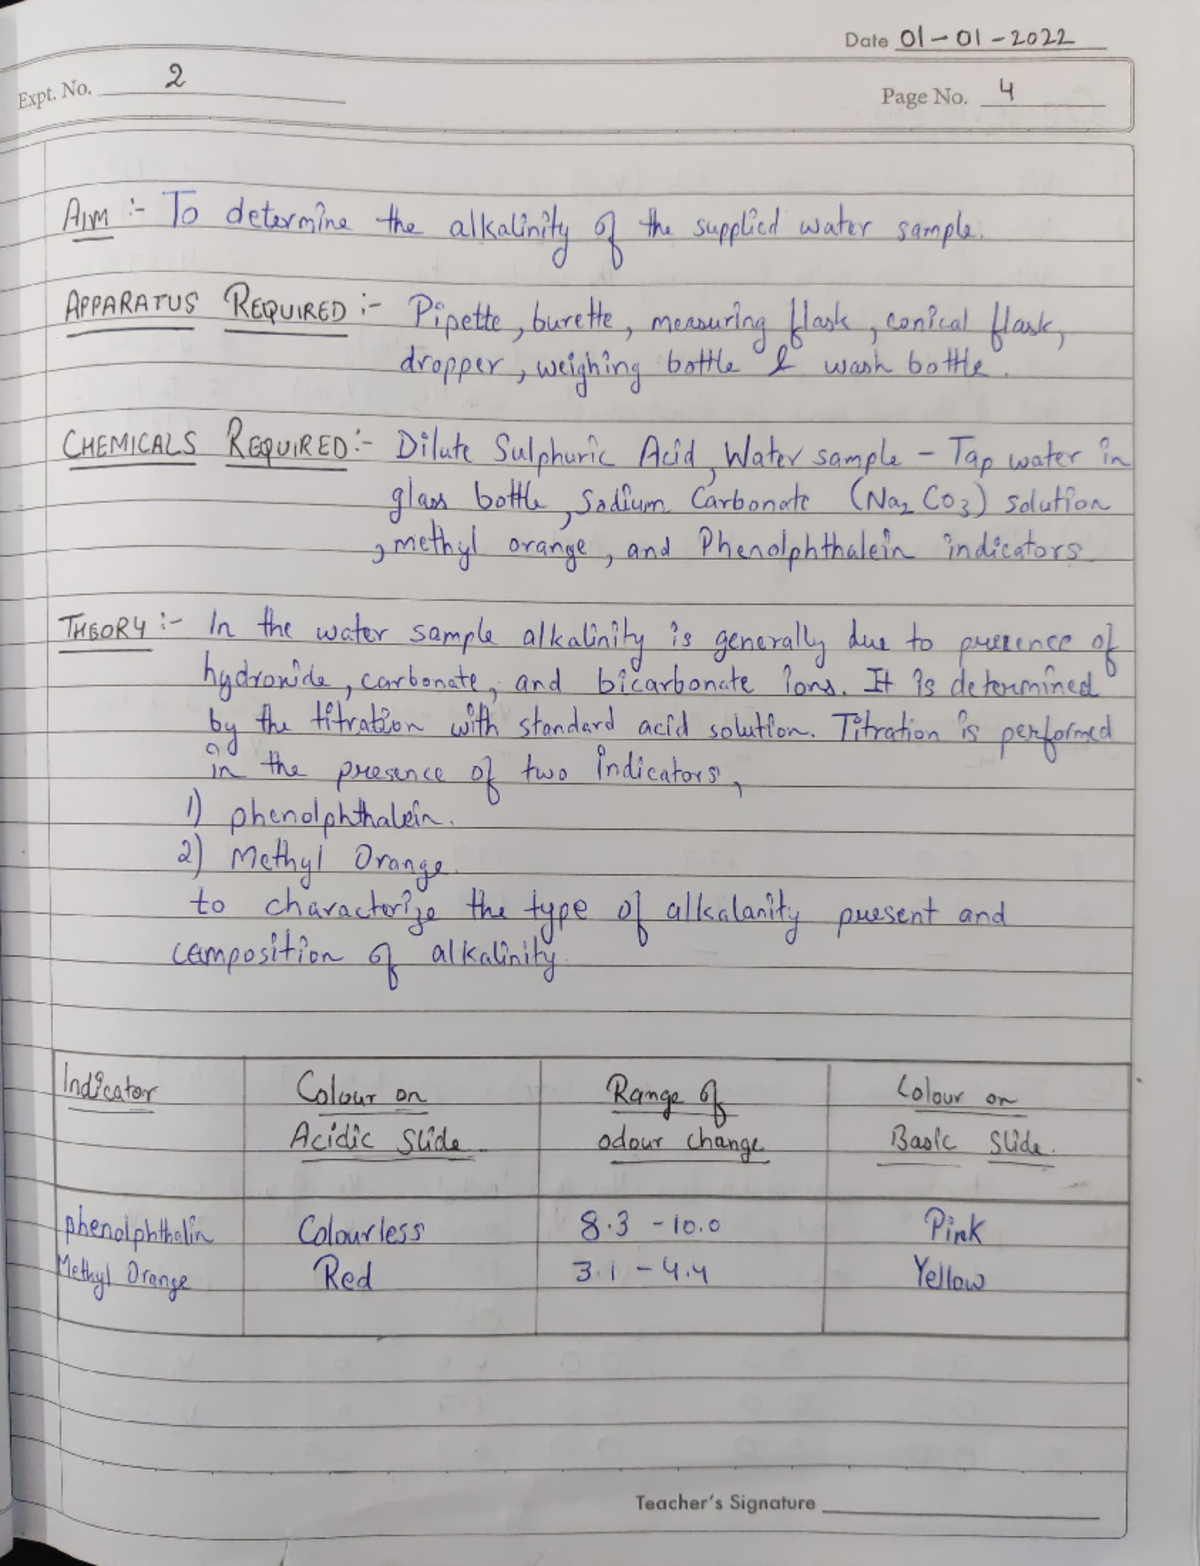 Date 01-01-2022
Expt. No. 2
Page No. 4
AIM :- To determine the alkalinity of the supplied water sample.
APPARATUS REQUIRED :- Pipette, burette, measuring flask, conical flask,
dropper, weighing bottle & wash bottle.
CHEMICALS REQUIRED :- Dilute Sulphuric Acid, Water sample - Tap water in
glass bottle, Sodium Carbonate (Na2 CO3) solution
, methyl orange, and Phenolphthalein indicators
THEORY :- In the water sample alkalinity is generally due to presence of
hydroxide, carbonate, and bicarbonate ions. It is determined
by the titration with standard acid solution. Titration is performed
in the presence of two indicators,
1) phenolphthalein.
2) Methyl Orange
to characterize the type of alkalanity present and
composition of alkalinity.
Indicator Colour on Range of Colour on
Acidic Slide odour change Basic Slide.
phenolphthalin Colourless 8.3 - 10.0 Pink
Methyl Orange Red 3.1 - 4.4 Yellow
Teacher's Signature